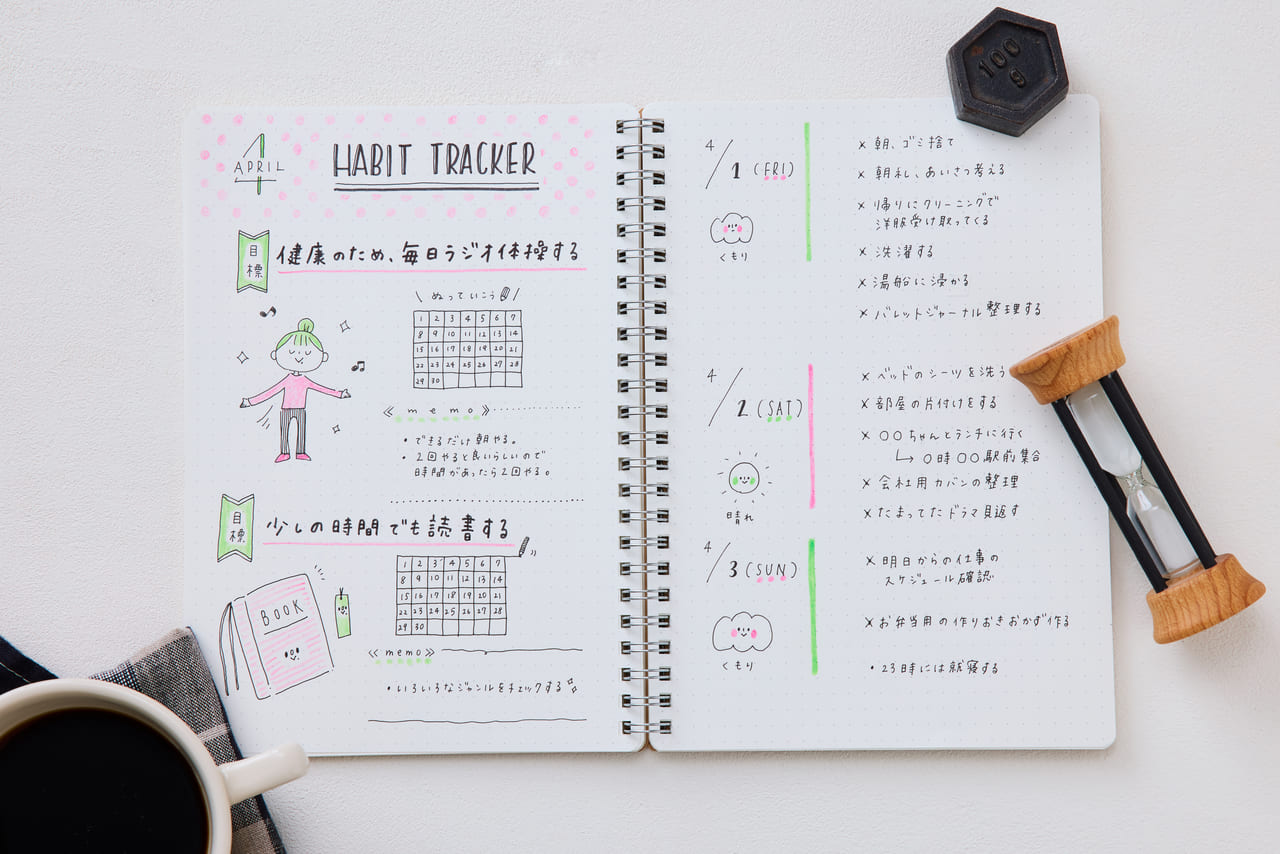 4
APRIL
HABIT TRACKER
目標
健康のため、毎日ラジオ体操する
\ ぬっていこう /
1 2 3 4 5 6 7
8 9 10 11 12 13 14
15 16 17 18 19 20 21
22 23 24 25 26 27 28
29 30
《memo》
・できるだけ朝やる。
・2回やると良いらしいので
時間があったら2回やる。
目標
少しの時間でも読書する
BOOK
1 2 3 4 5 6 7
8 9 10 11 12 13 14
15 16 17 18 19 20 21
22 23 24 25 26 27 28
29 30
《memo》
・いろいろなジャンルをチェックする
4/1 (FRI)
くもり
× 朝、ゴミ捨て
× 朝礼、あいさつ考える
× 帰りにクリーニングで
洋服受け取ってくる
× 洗濯する
× 湯船に浸かる
× バレットジャーナル整理する
4/2 (SAT)
晴れ
× ベッドのシーツを洗う
× 部屋の片付けをする
× 〇〇ちゃんとランチに行く
↳ 〇時〇〇駅前集合
× 会社用カバンの整理
× たまってたドラマ見返す
4/3 (SUN)
くもり
× 明日からの仕事の
スケジュール確認
× お弁当用の作りおきおかず作る
・23時には就寝する
100
g